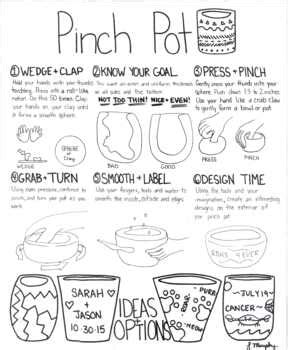 Pinch Pot
① WEDGE + CLAP
Hold your hands with your thumbs
touching. Press into a ball-like
motion. Do this 50 times. Clap
your hands on your clay until
it forms a smooth sphere.
② KNOW YOUR GOAL
You want an even and uniform thickness
on all sides and the bottom.
NOT TOO THIN! NICE + EVEN!
③ PRESS + PINCH
Gently press your thumbs into your
sphere. Push down 1.5 to 2 inches.
Use your hand like a crab claw
to gently form a bowl or pot.
WEDGE
SPHERE
of
Clay
BAD
GOOD
PRESS
PINCH
④ GRAB + TURN
Using even pressure, continue to
pinch, and turn your pot as you
work.
⑤ SMOOTH + LABEL
Use your fingers, tools and water to
smooth the inside, outside and edges.
⑥ DESIGN TIME
Using the tools and your
imagination, create an interesting
design on the exterior of
your pinch pot.
DOGS 4 EVER
SARAH
+
JASON
10·30·15
IDEAS
+
OPTIONS
PURR
MEOW
~JULY 19~
CANCER~
J. Murphy